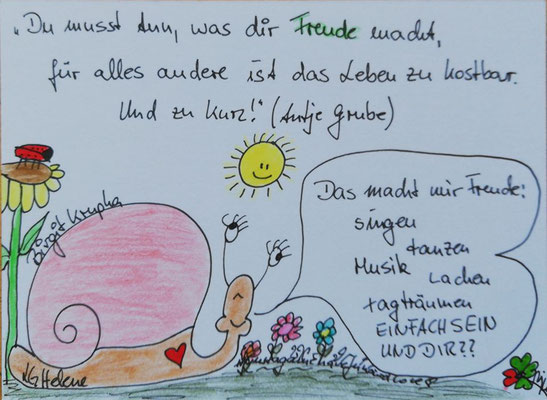 „Du musst tun, was dir Freude macht,
für alles andere ist das Leben zu kostbar.
Und zu kurz!" (Antje Grube)
Das macht mir Freude:
singen
tanzen
Musik
Lachen
tagträumen
EINFACH SEIN
UND DIR??
Birgit Krupha
Helene